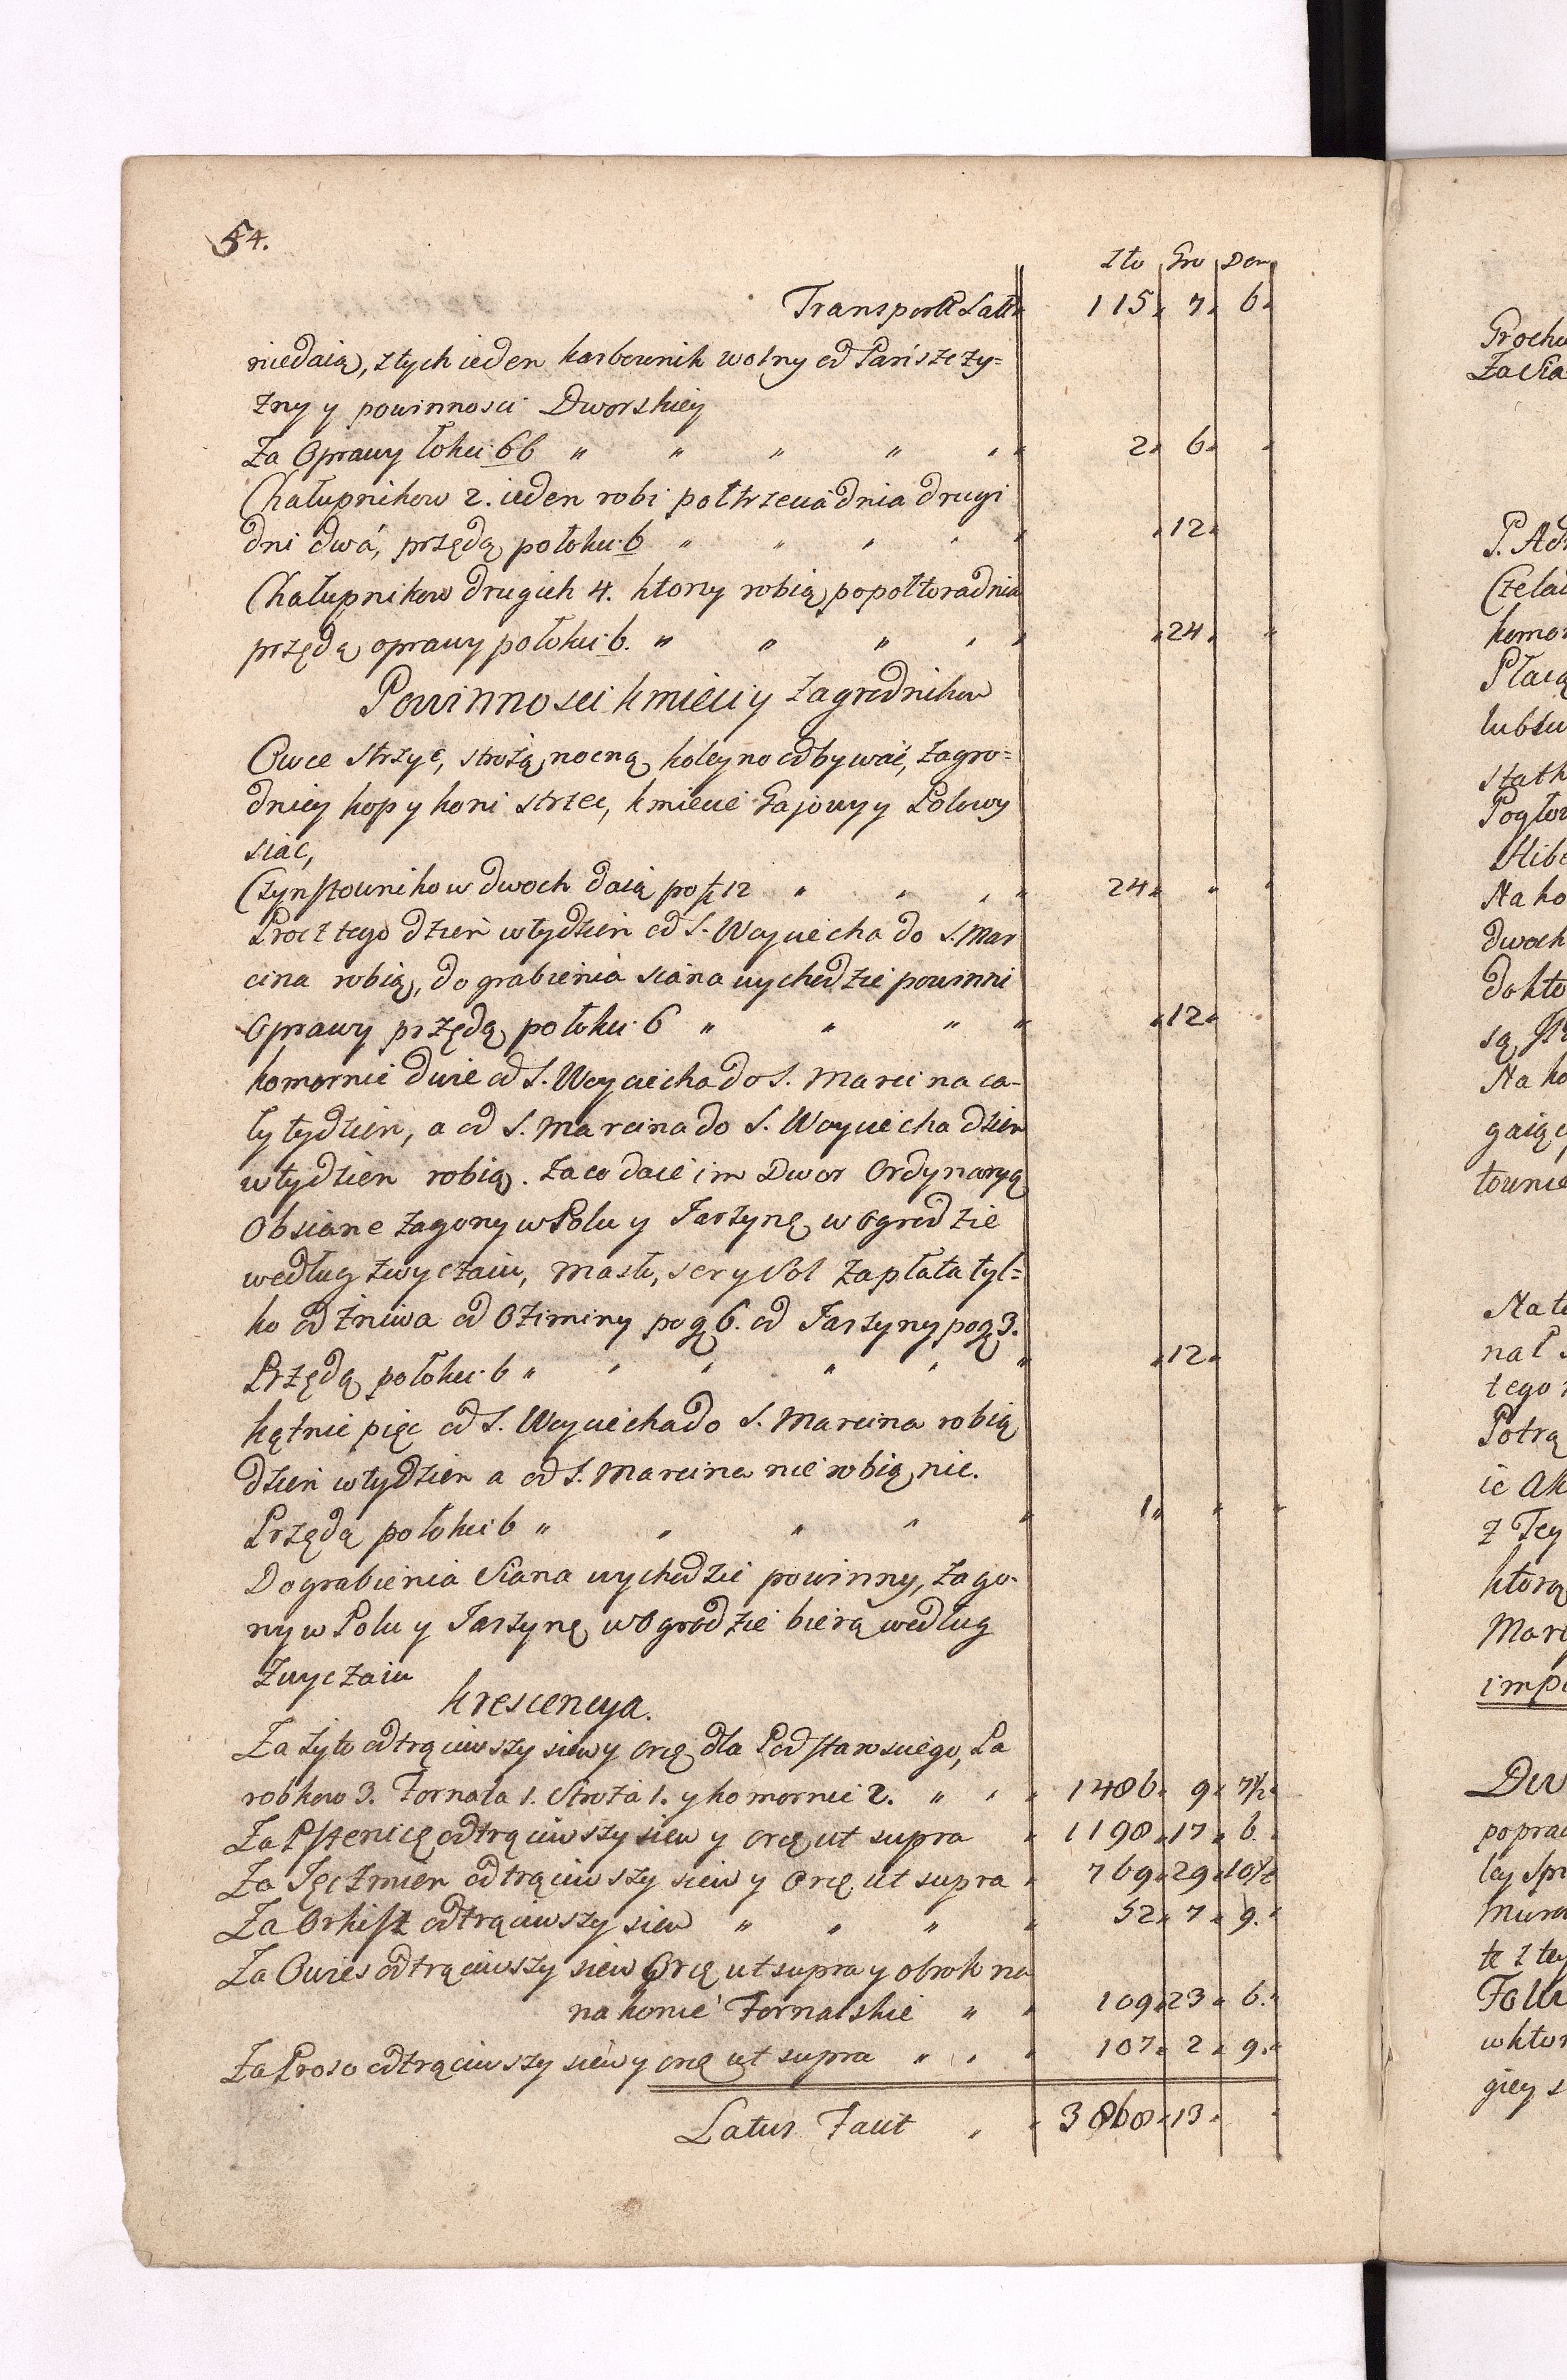 54.
Złło Gro Den
Transport Lat. 115 7 6
niedaią, z tych ieden karbownik wolny od Pańszczy=
zny y powinnosci Dworskiey
Za Oprawy łokci 66 " " " " " 2 6
Chałupnikow 2. ieden robi połtrzecia dnia drugi
dni dwá, przędą po łokci 6 " " " " " 12
Chałupnikow drugich 4. ktorzy robią po połtora dnia
przędą oprawy po łokci 6. " " " " " 24
Powinnosci kmieci y Zagrodnikow
Owce strzyc, strożą nocną koleyno odbywać, Zagro=
dnicy kop y koni strzec, kmiecie Gajowy y Polowy
siac,
Czynszownikow dwoch daią po zł 12 " " " " 24
Procz tego dzień w tydzień od S. Woyciecha do S. Mar
cina robią, do grabienia siana wychodzić powinni
Oprawy przędą po łokci 6 " " " " 12
komornice dwie od S. Woyciecha do S. Marcina ca-
ły tydzien, a od S. Marcina do S. Woyciecha dzien
w tydzien robią. Zaco daie im Dwor Ordynaryą
Obsiane zagony w Polu y Jarzynę w ogrodzie
według zwyczaiu, masło, ser y Sol zapłata tyl=
ko od żniwa od Oziminy po gr 6. od Jarzyny po gr 3.
Przędą po łokci 6 " " " " " " 12
kątnic pięc od S. Woyciecha do S. Marcina robią
dzień w tydzien a od S. Marcina nie robią nic.
Przędą po łokci 6 " " " " " 1
Do grabienia Siana wychodzić powinny, zago-
ny w Polu y Jarzynę w Ogrodzie biorą według
zwyczaiu
krescencya.
Za żyto odtrąciwszy siew y orę dla Podstarosciego, Pa
robkow 3. Fornala 1. Stroża 1. y komornic 2. " " " 1486 9 7½
Za Pszenicę odtrąciwszy siew y orę ut supra " 1198 17 6.
Za Jęczmien odtrąciwszy siew y orę ut supra " 769 29 10½
Za Orkisz odtrąciwszy siew " " " " 52 7 9.
Za Owies odtrąciwszy siew y Orę ut supra y obrok na
na konie Fornalskie " " 109 23 6.
Za Proso odtrąciwszy siew y orę ut supra " " " 107 2 9.
Latus Facit " " 3868 13
Grochu
P. Ad
komor
Płacą
lub
Na ko
dwoch
dokto
są
Na ko
gaiąc
tego
Potrą
z Tey
ktorą
Marc
Dw
te z tey
w ktor
giey